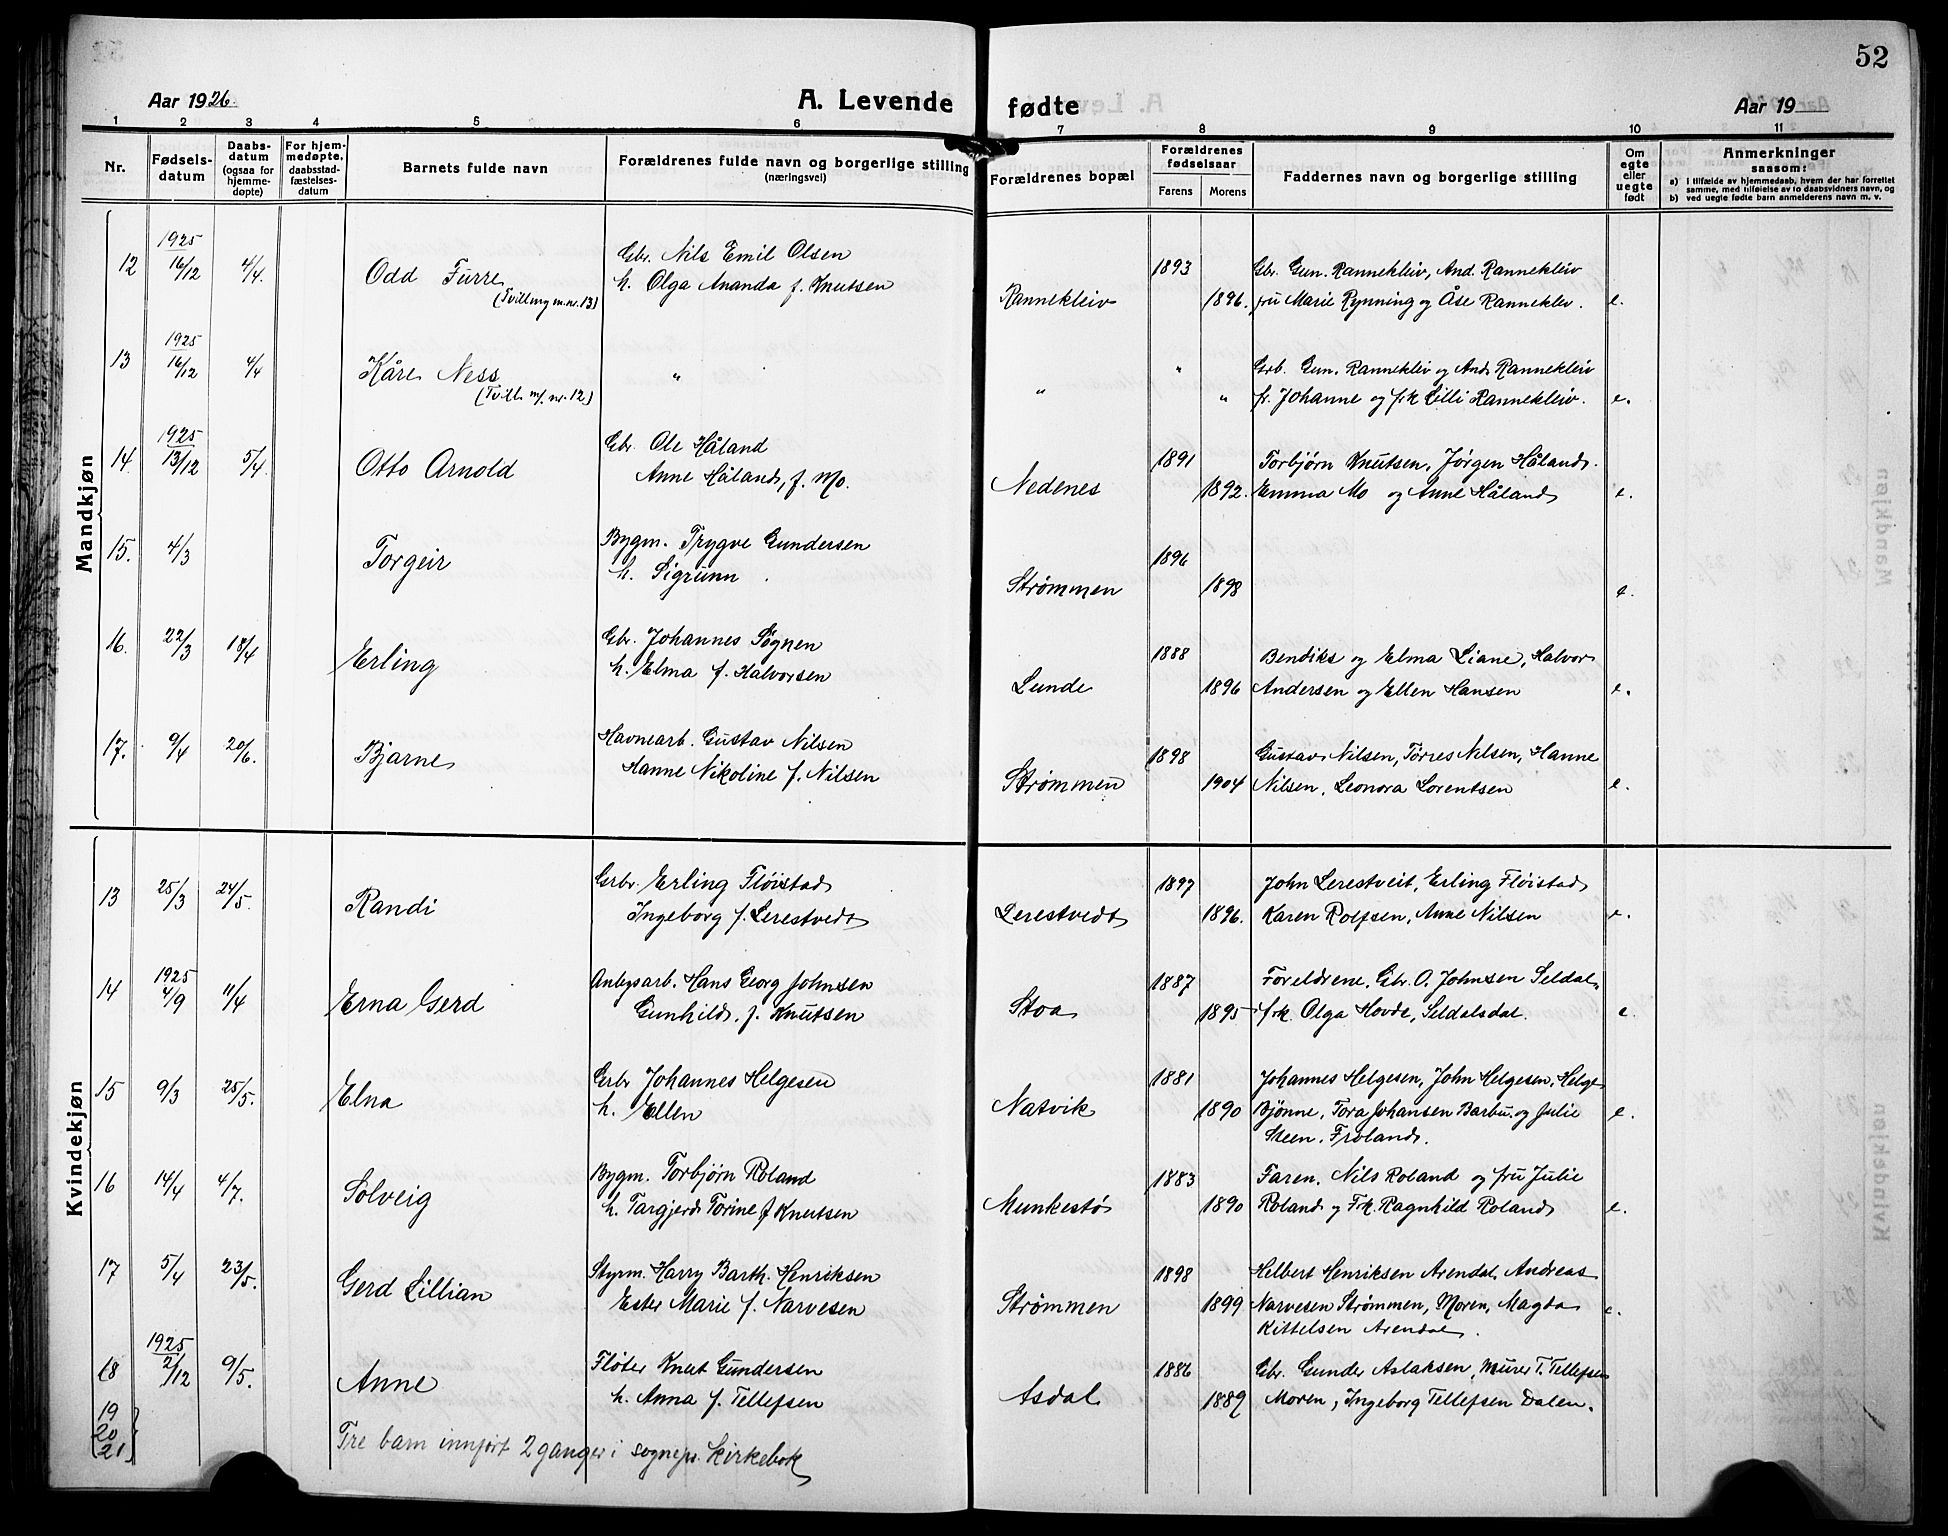 52
Aar 1926.
A. Levende
fødte
Aar 19
1 2 3 4 5 6 7 8 9 10 11
Nr.
Fødsels-
datum
Daabs-
datum
(ogsaa for
hjemme-
døpte)
For hjem-
medøpte,
daabsstad-
fæstelses-
datum
Barnets fulde navn
Forældrenes fulde navn og borgerlige stilling
(næringsvei)
Forældrenes bopæl
Forældrenes
fødselsaar
Farens Morens
Faddernes navn og borgerlige stilling
Om
egte
eller
uegte
født
Anmerkninger
saasom:
a) i tilfælde av hjemmedaab, hvem der har forrettet
samme, med tilføielse av to daabsvidners navn, og
b) ved uegte fødte barn anmelderens navn m. v.
Mandkjøn
1925
12 16/12 4/4. Odd Furre Gbr. Nils Emil Olsen 1893 Gbr. Gun. Rannekleiv, And. Rannekleiv
(Tvilling m. nr. 13) h. Olga Ananda f. Knutsen Rannekleiv 1896. fru Marie Rynning og Åse Ranneklev. e.
1925
13 16/12 4/4 Kåre Ness " " Grb. Gun. Ranneklev og And. Rannekleiv
(Tvill. m/. nr. 12.) " " fr. Johanne og frk Lilli Rannekleiv. e.
1925
14. 13/12 5/4. Otto Arnold Gbr. Ole Håland 1891 Torbjørn Knutsen, Jørgen Håland.
Anne Håland, f. Mo. Nedenes 1892. Emma Mo og Anne Håland e.
15. 4/3 Torgeir Bygm. Trygve Gundersen 1896
h. Sigrunn . Strømmen 1898 e.
16. 22/3 18/4 Erling Gbr. Johannes Søgnen 1888 Bendiks og Elma Liane, Halvor
h. Elma f. Halvorsen Lunde 1896 Andersen og Ellen Hansen e.
17. 9/4 20/6. Bjarne Havnearb. Gustav Nilsen 1898 Gustav Nilsen, Tørres Nilsen, Hanne
Hanne Nikoline f. Nilsen Strømmen 1904 Nilsen, Leonora Lorentsen e.
Kvindekjøn
13 25/3 24/5. Randi Grbr. Erling Fløistad 1897 John Lerestveit, Erling Fløistad
Ingeborg f. Lerestvedt Lerestvedt 1896. Karen Rolfsen, Anne Nilsen e.
1925
14 4/9 11/4 Erna Gerd Anlegsarb. Hans Georg Johnsen 1887 Foreldrene, Gbr. O. Johnsen Seldal.
Gunhild, f. Knutsen Stoa 1895 frk. Olga Hovde, Seldalsdal. e.
15 9/3 25/5. Elna Grbr Johannes Helgesen 1881 Johannes Helgesen, John Helgesen, Helge
h. Ellen Natvik 1890 Bjønne, Tora Johansen Barbu. og Julie e.
Steen. Froland.
16 14/4 4/7. Solveig Bygm. Torbjørn Roland 1883 Faren, Nils Roland og fru Julie
h. Targjerd Torine f Knutsen Munkestø 1890 Roland og Frk. Ragnhild Roland e.
17 5/4 23/5. Gerd Lillian Styrm. Harry Barth. Henriksen 1898 Helbert Henriksen Arendal, Andreas
Ester Marie f. Narvesen Strømmen 1899 Narvesen Strømmen, Moren, Magda e.
Kittelsen Arendal.
1925
18 2/12 9/5. Anne Fløter Knut Gundersen 1886 Gbr. Gunder Aslaksen, Murer T. Tellefsen
h. Anna f. Tellefsen Asdal 1889 Moren, Ingeborg Tellefsen Dalen.
19
20
21
Tre barn innført 2 ganger i sognepr. kirkebok